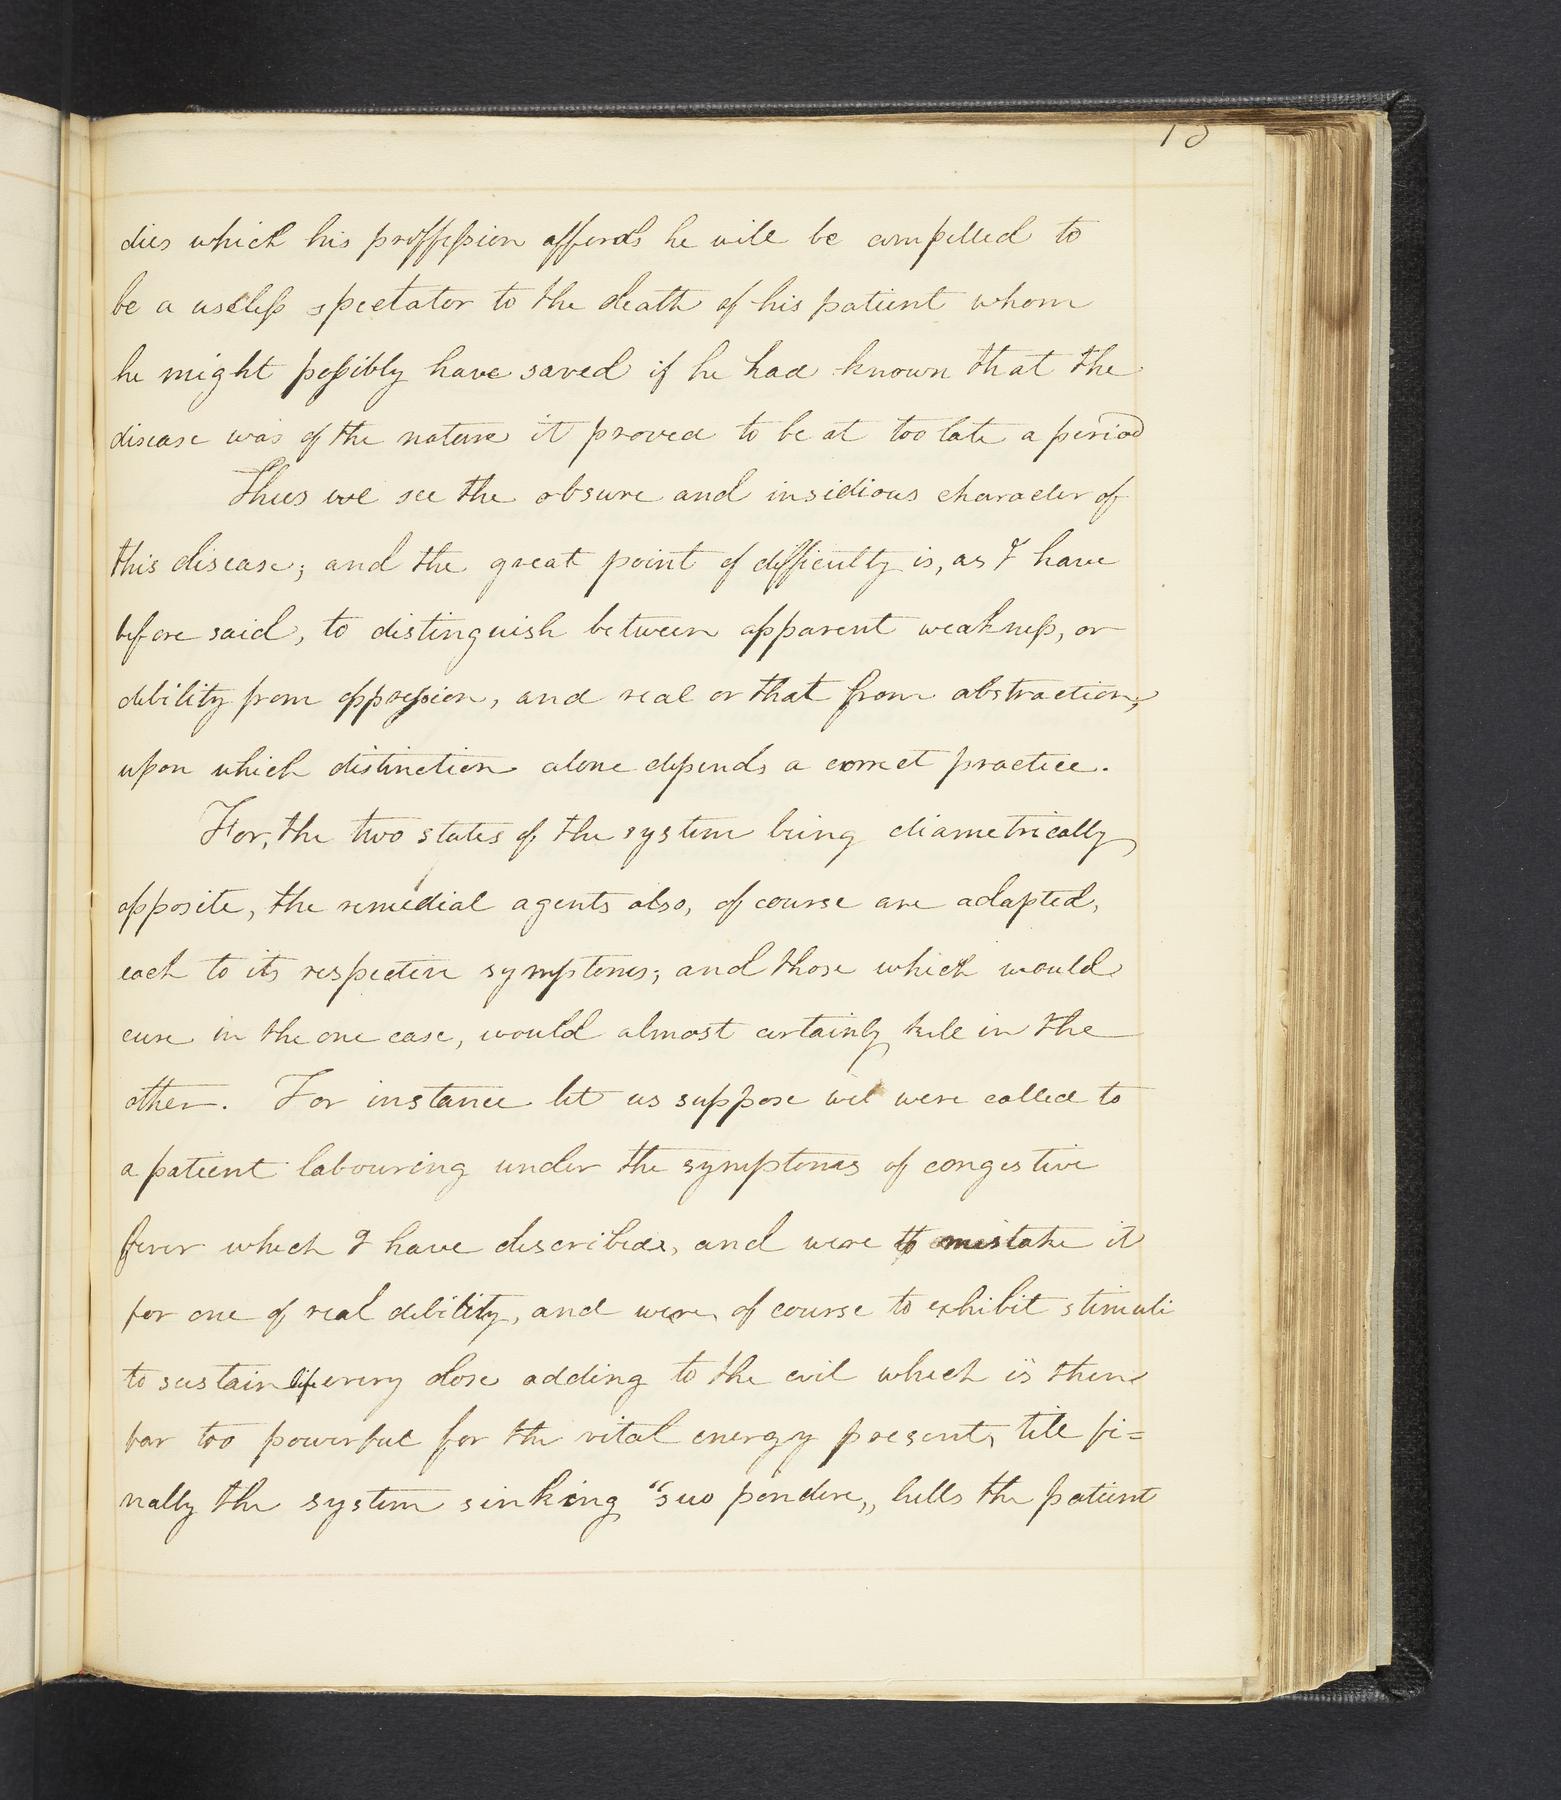 dies which his proffession affords he will be compelled to
be a useless spectator to the death of his patient whom
he might possibly have saved if he had known that the
disease was of the nature it proved to be at too late a period
Thus we see the obsure and insidious character of
this disease; and the great point of difficulty is, as I have
before said, to distinguish between apparent weakness, or
debility from oppression, and real or that from abstraction,
upon which distinction alone depends a correct practice.
For, the two states of the system being diametrically
opposite, the remedial agents also, of course are adapted,
each to its respective symptoms; and those which would
cure in the one case, would almost certainly kill in the
other. For instance let us suppose we were called to
a patient labouring under the symptoms of congestive
fever which I have described, and were to mistake it
for one of real debility, and were, of course to exhibit stimuli
to sustain life every dose adding to the evil which is then
far too powerful for the vital energy present, till fi=
nally the system sinking "suo pondere,, kills the patient